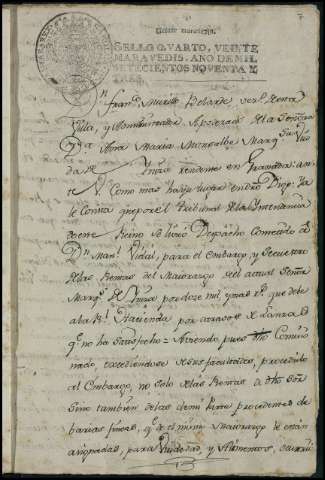 Veinte maravedis.
SELLO QVARTO, VEINTE
MARAVEDIS, AÑO DE MIL
SETECIENTOS NOVENTA Y
Dn Franco Murillo Velarde, veco de esta
Villa, y Administrador Apoderado de la Señora
Da Maria Marqa
en Granada an
te V. Como mas haya lugar en dro Digo: Ya
le Consta que por el Tribunal de la Intendencia
de este Reino se libro Despacho Cometido a
Dn Manl Vidal, para el Embargo, y Sequestro
de las Rentas del Maiorazgo del actual Señor
Marqs de por doze mil, y mas rs que debe
a la Rl Hacienda por atrasos de Lanzas
qe no ha satisfecho: Haviendo pues dho Comisio
nado, excediendose de sus facultades, procedido
al Embargo, no solo de las Rentas de dho Sor
sino tambien de las demas procedentes de
barias fincas, qe de el mismo Maiorazgo le estan
para Viudedad, y Alimentos,